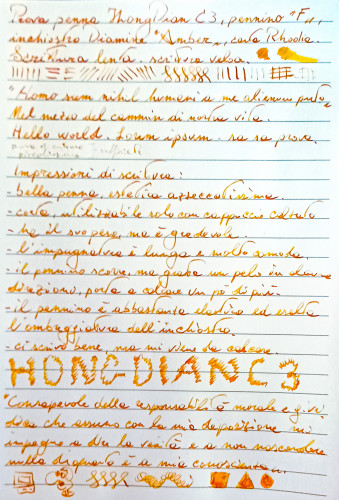 Prova penna HongDian C3, pennino "F",
inchiostro Diamine "Amber", carta Rhodia.
Scrittura lenta. scrittura veloce.
"Homo sum nihil humani a me alienum puto"
Nel mezzo del cammin di nostra vita.
Hello world. Lorem ipsum. sa sa prova.
Impressioni di scrittura:
- bella penna, estetica azzeccatissima.
- corta, utilizzabile solo con cappuccio calzato
- ha il suo peso, ma è gradevole.
- l'impugnatura è lunga e molto comoda.
- il pennino scorre, ma gratta un pelo in alcune
direzioni, porta a calcare un po' di più.
- il pennino è abbastanza elastico ed esalta
l'ombreggiatura dell'inchiostro.
- ci scrivo bene, ma mi viene da calcare.
HONG-DIAN C3
"Consapevole della responsabilità morale e giuri
dica che assumo con la mia deposizione mi
impegno a dire la verità e a non nascondere
nulla di quanto è a mia conoscenza"